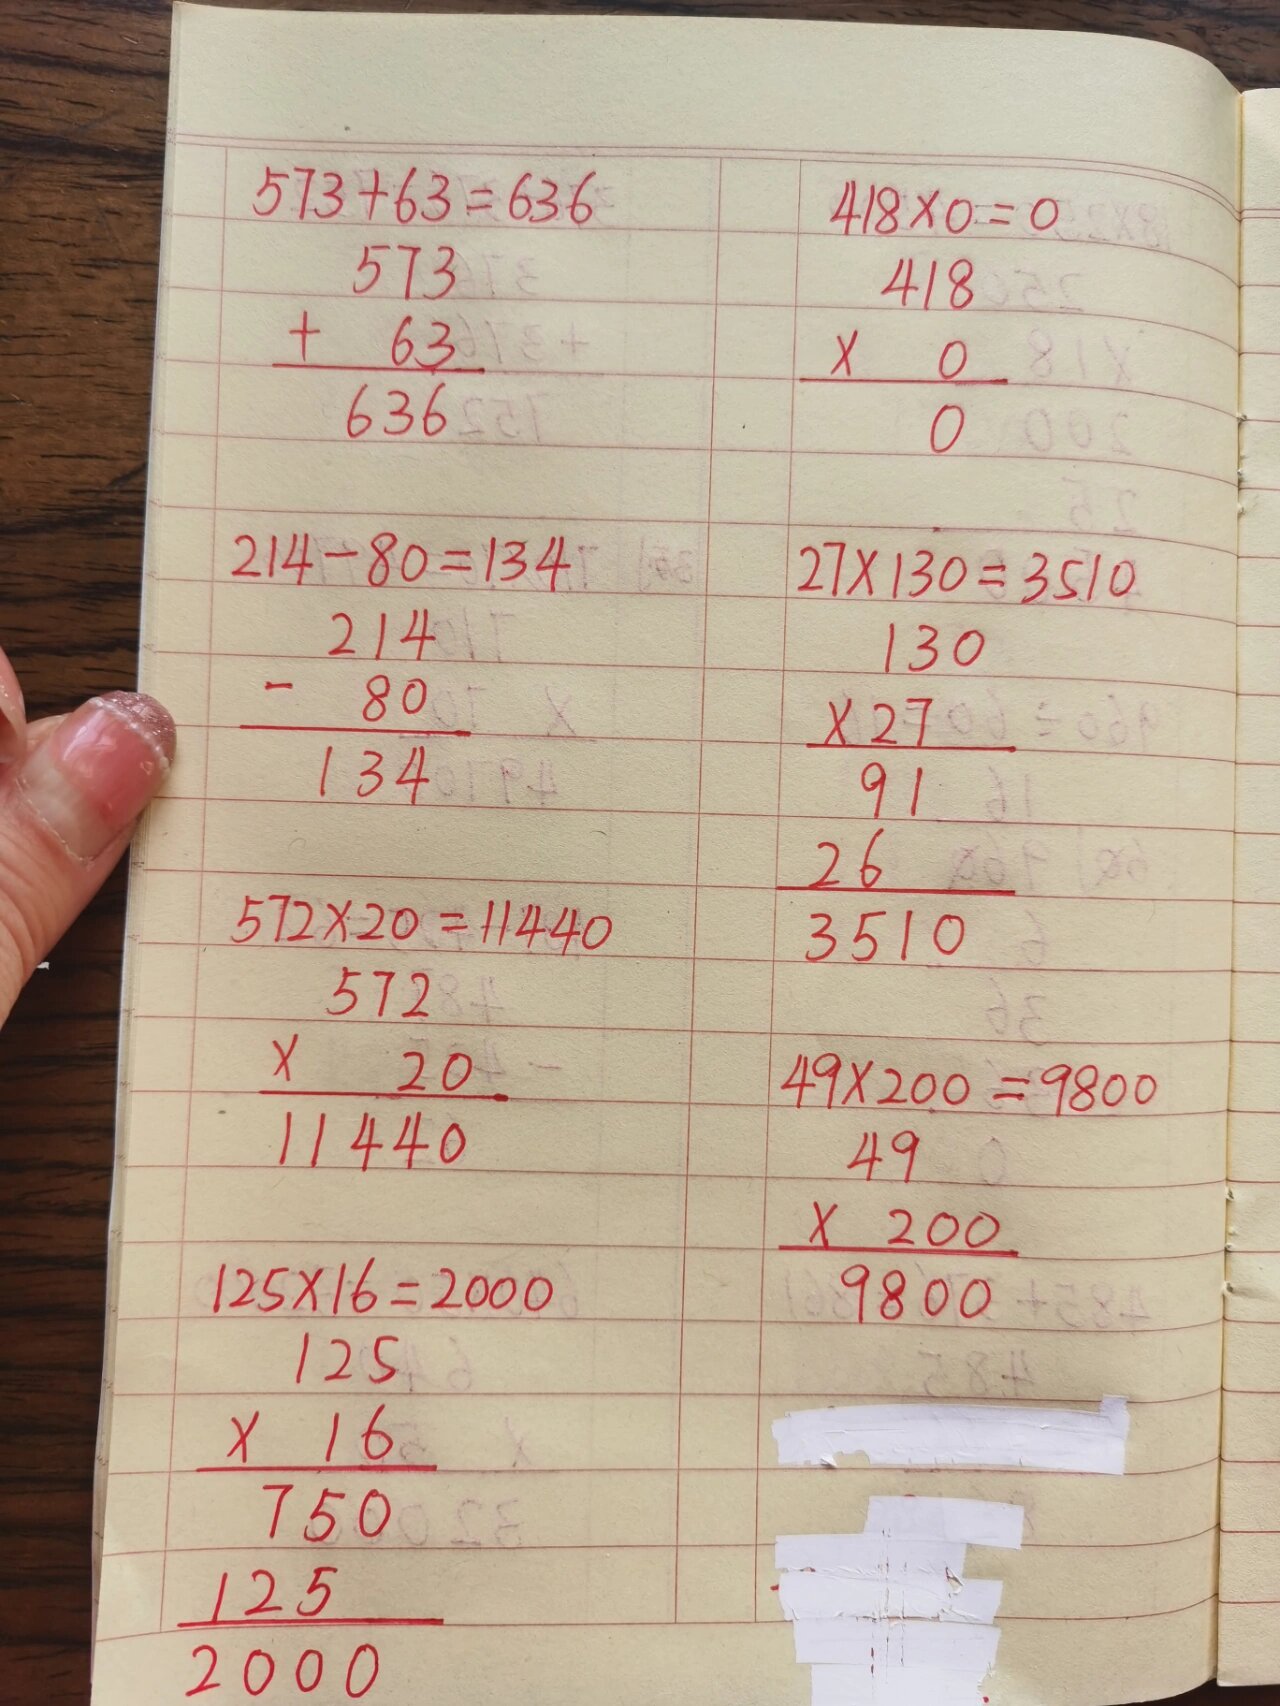 573+63=636
573
+ 63
636
214-80=134
214
- 80
134
572×20=11440
572
× 20
11440
125×16=2000
125
× 16
750
125
2000
418×0=0
418
× 0
0
27×130=3510
130
×27
91
26
3510
49×200=9800
49
× 200
9800